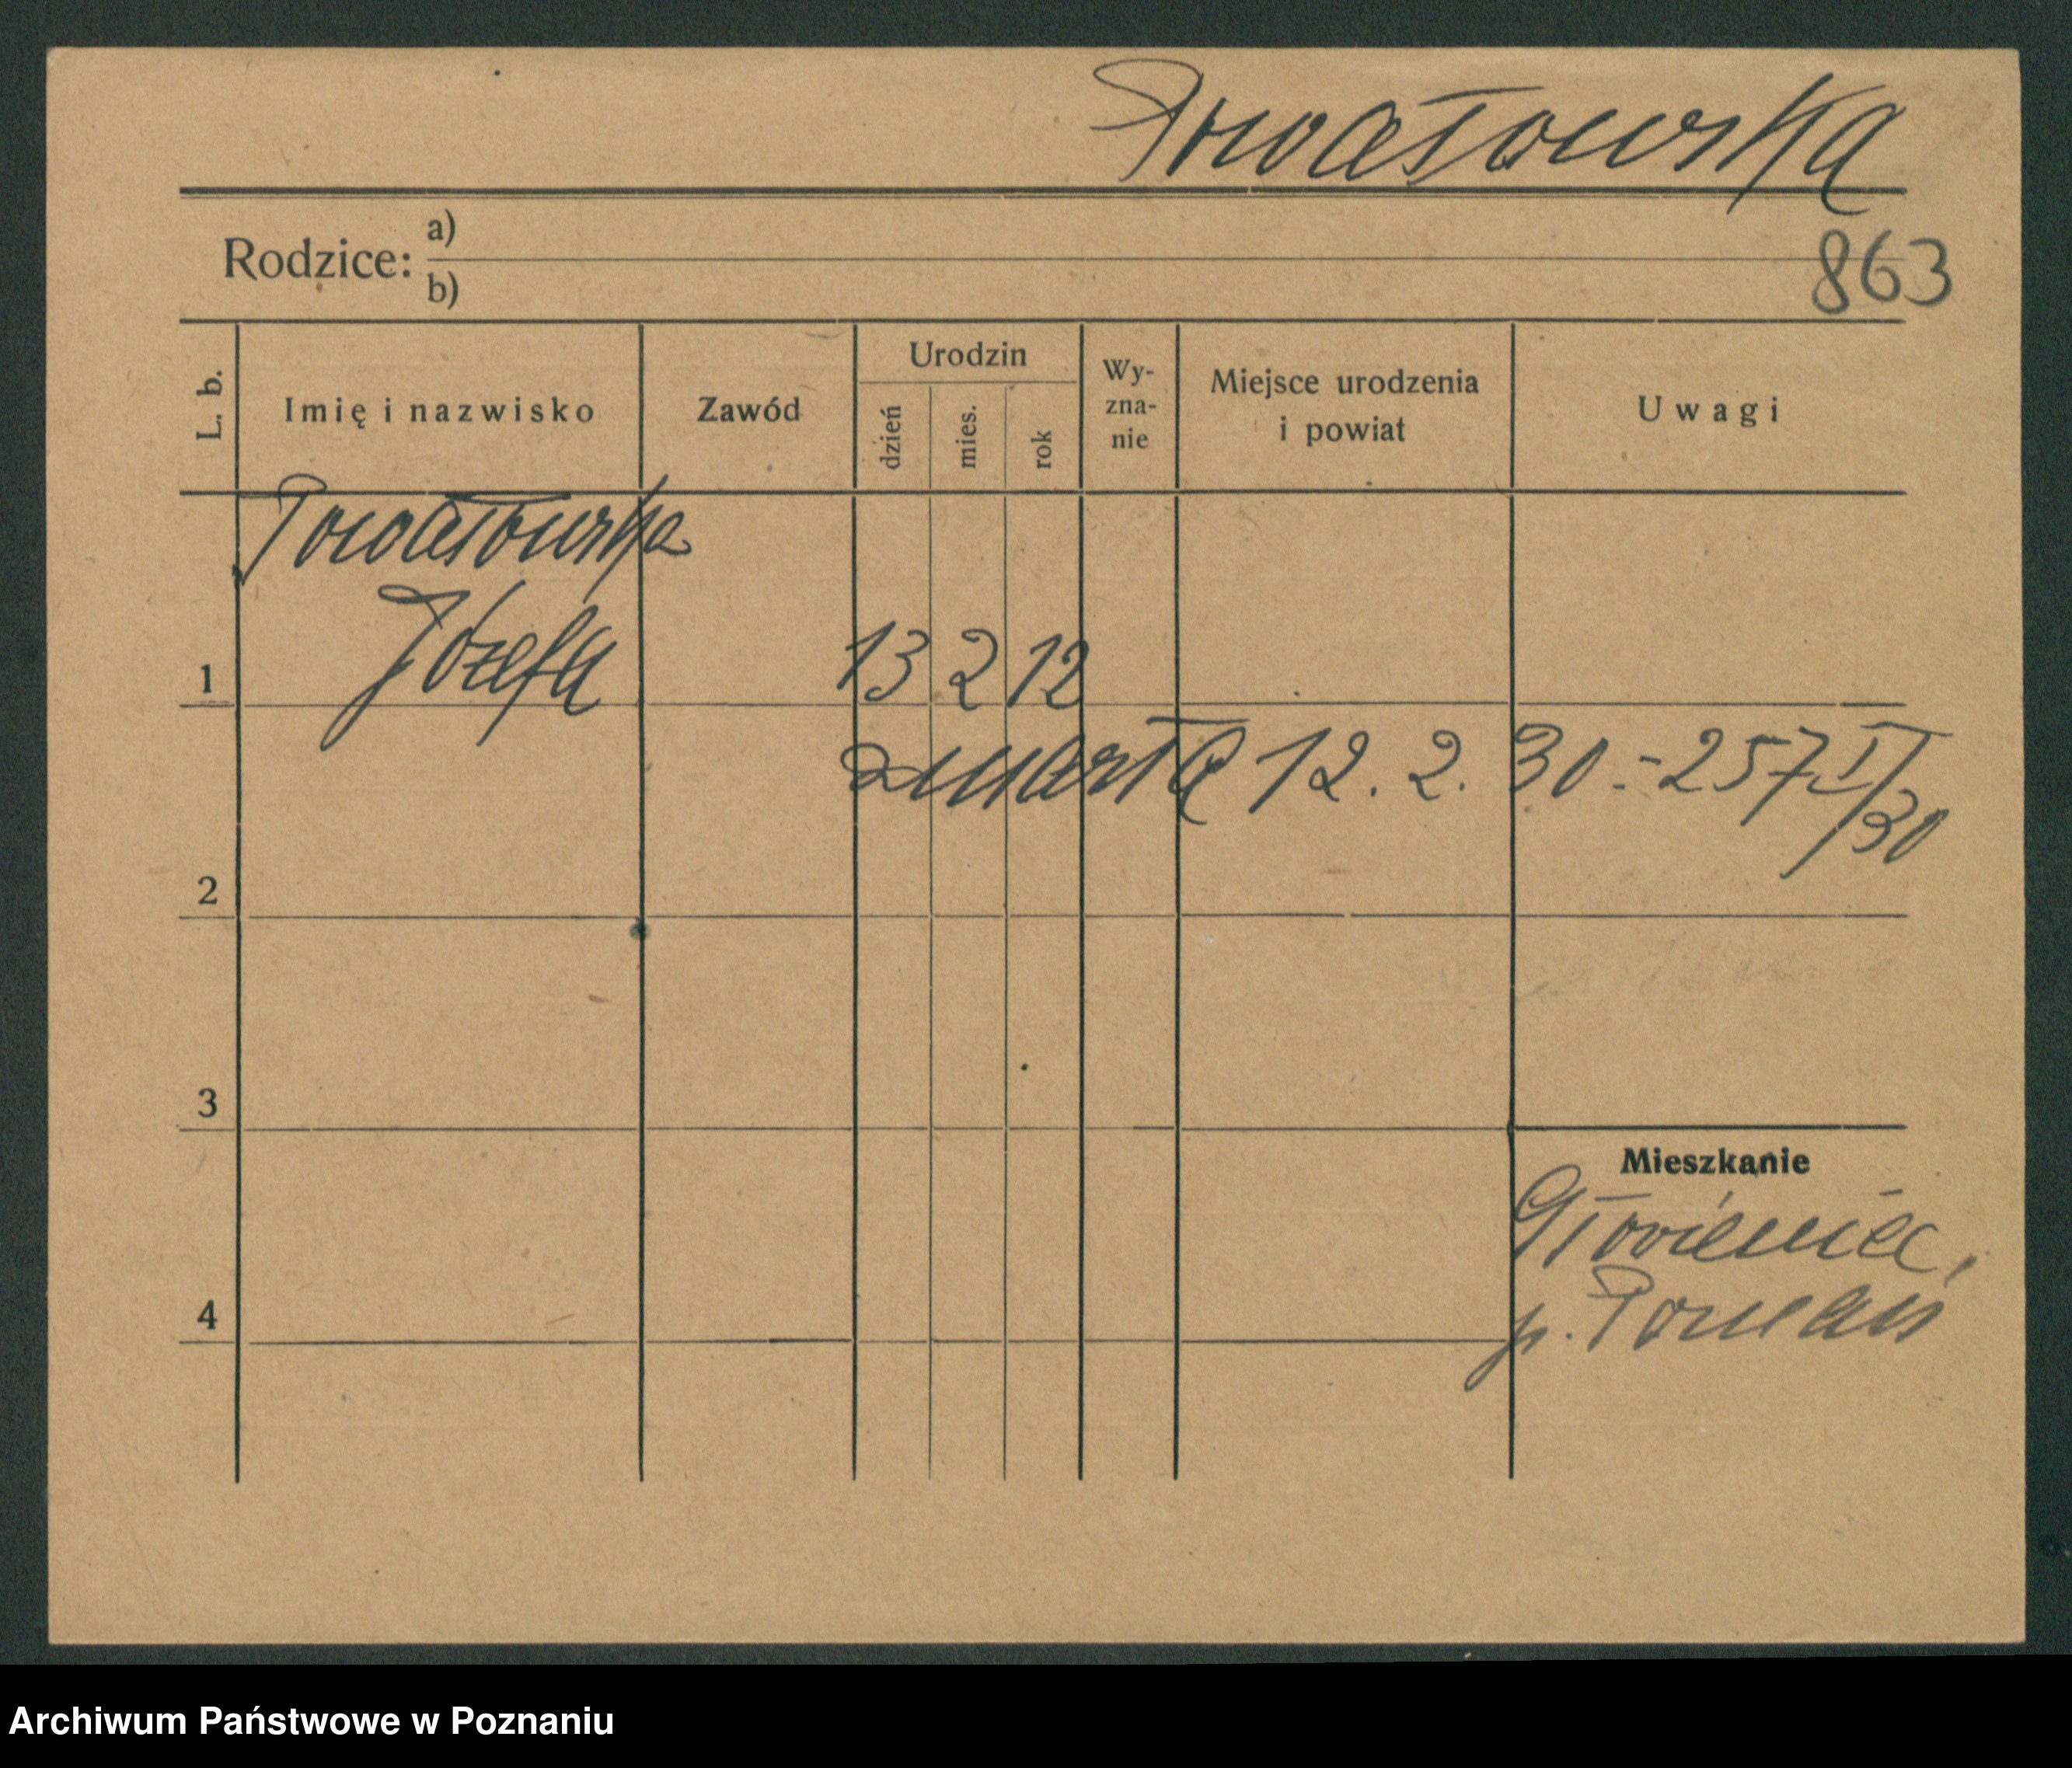 Powałowska
Rodzice: a)
b)
863
L. b.
Imię i nazwisko
Zawód
Urodzin
dzień
mies.
rok
Wy-
zna-
nie
Miejsce urodzenia
i powiat
Uwagi
Powałowska
Józefa
1
13 2 12
zmarła 12. 2. 30 = 257 I/30
2
3
4
Mieszkanie
p. Poznań
Archiwum Państwowe w Poznaniu